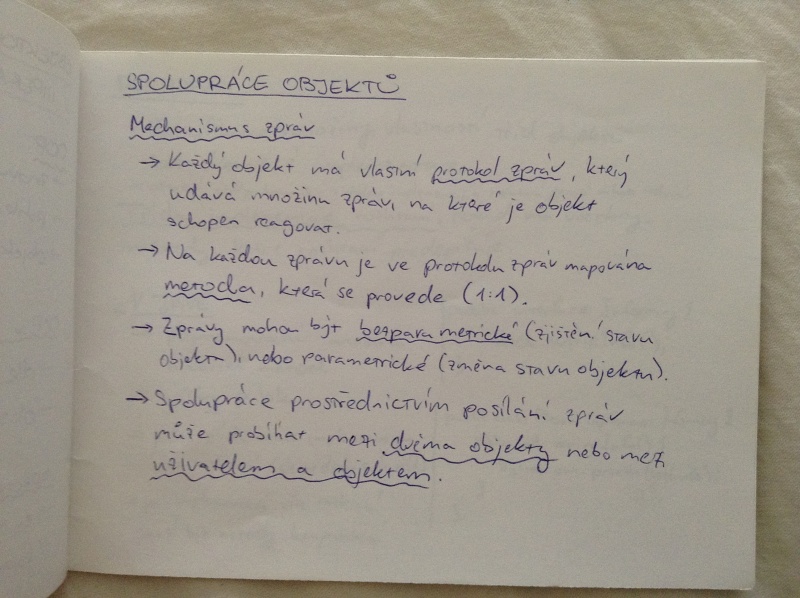 SPOLUPRÁCE OBJEKTŮ
Mechanismus zpráv
→ Každý objekt má vlastní protokol zpráv, který
udává množinu zpráv, na které je objekt
schopen reagovat.
→ Na každou zprávu je ve protokolu zpráv mapována
metoda, která se provede (1:1).
→ Zprávy mohou být bezparametrické (zjištění stavu
objektu), nebo parametrické (změna stavu objektu).
→ Spolupráce prostřednictvím posílání zpráv
může probíhat mezi dvěma objekty nebo mezi
uživatelem a objektem.